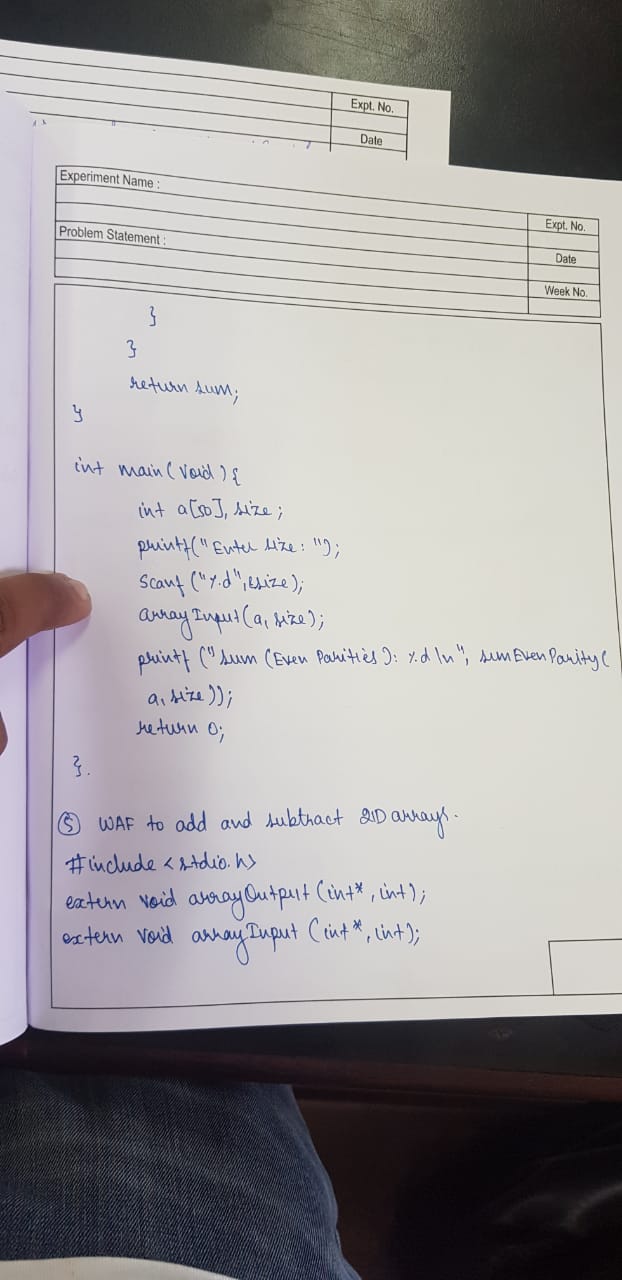 Expt. No.
Date
Experiment Name :
Expt. No.
Problem Statement :
Date
Week No.
}
}
return sum;
}
int main(void){
int a[50], size;
printf("Enter size: ");
scanf("%d",&size);
arrayInput(a, size);
printf("Sum (Even Parities): %d\n", sumEvenParity(
a, size));
return 0;
}.
⑤ WAF to add and subtract 21D arrays.
#include <stdio.h>
extern void arrayOutput (int*, int);
extern void arrayInput (int*, int);